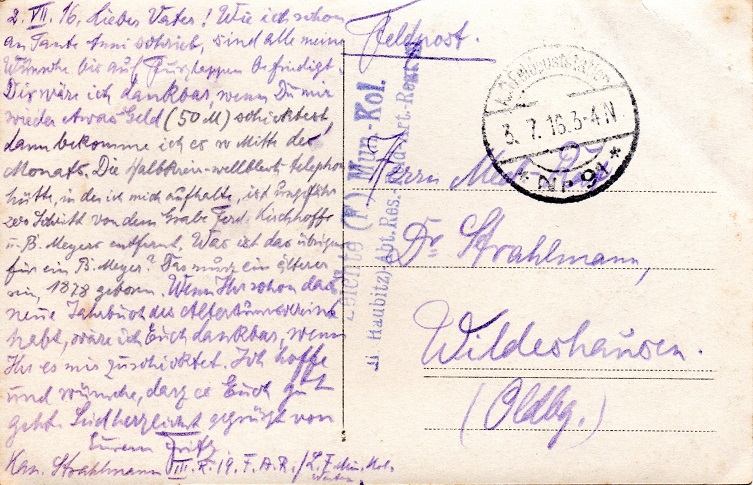 2. VII. 16. Lieber Vater! Wie ich schon
an Tante Anni schrieb, sind alle meine
Wünsche bis auf Fusslappen befriedigt.
Dir wäre ich dankbar, wenn Du mir
wieder etwas Geld (50 M) schicktest,
dann bekomme ich es so Mitte des
Monats. Die Halbkreis-wellblech-telephon
hütte, in der ich mich aufhalte, ist ungefähr
Schritt von dem Grabe Ferd. Kirchhoffs
u. B. Meyers entfernt. Was ist das übrigens
für ein B. Meyer? Das muss ein älterer
sein, 1878 geboren. Wenn Ihr schon das
neue Jahrbuch des Altertumsvereins
habt, wäre ich Euch dankbar, wenn
Ihr es mir zuschicktet. Ich hoffe
und wünsche, dass es Euch gut
geht. Seid herzlichst gegrüsst von
Eurem Fritz
Kan. Strahlmann VIII. R. 19. F. A. R. / L. F. Mun. Kol.
Feldpost.
K.D. Feldpoststation
3. 7. 16. 3-4 N.
* Nr. 91 *
Leichte (F) Mun.-Kol.
II. (Haubitz)-Abt. Res.-Feld-Art.-Regt.
Herrn Med. Rat
Dr. Strahlmann,
Wildeshausen.
(Oldbg.)